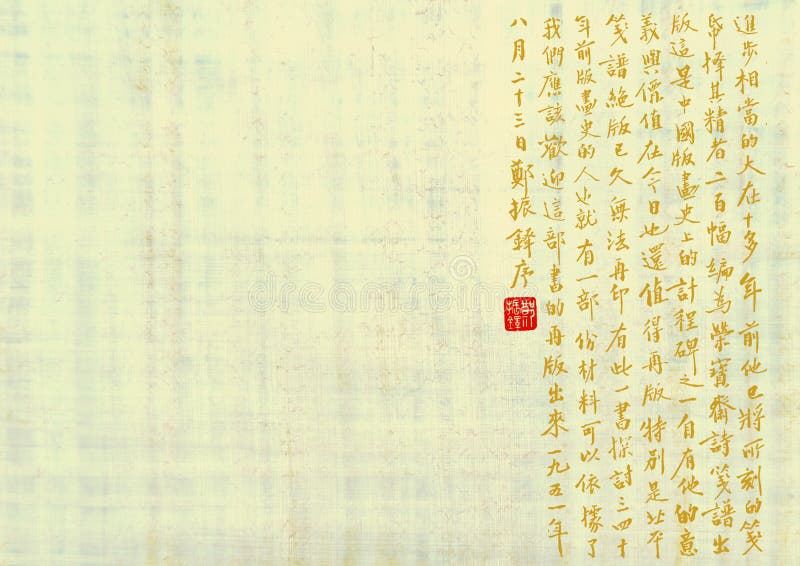 進步相當的大在十多年前他已將所刻的箋
帋擇其精者二百幅編為榮寶齋詩箋譜出
版這是中國版畫史上的計程碑之一自有他的意
義與價值在今日也還值得再版特別是北平
箋譜絕版已久無法再印有此一書探討三四十
年前版畫史的人也就有一部份材料可以依據了
我們應該歡迎這部書的再版出來一九五一年
八月二十三日鄭振鐸序
dreamstime